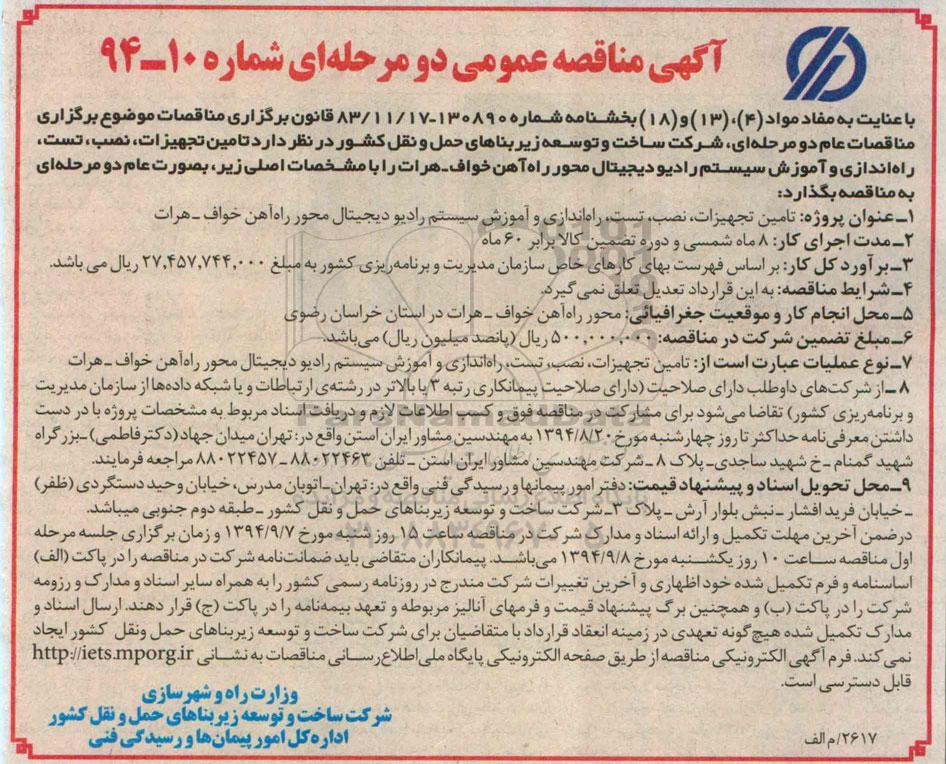 آگهی مناقصه عمومی دو مرحله‌ای شماره ۱۰-۹۴
با عنایت به مفاد مواد (۴)، (۱۳) و (۱۸) بخشنامه شماره ۱۳۰۸۹۰-۸۳/۱۱/۱۷ قانون برگزاری مناقصات موضوع برگزاری
مناقصات عام دو مرحله‌ای، شرکت ساخت و توسعه زیربناهای حمل و نقل کشور در نظر دارد تامین تجهیزات، نصب، تست،
راه‌اندازی و آموزش سیستم رادیو دیجیتال محور راه‌آهن خواف-هرات را با مشخصات اصلی زیر، بصورت عام دو مرحله‌ای
به مناقصه بگذارد:
۱-عنوان پروژه: تامین تجهیزات، نصب، تست، راه‌اندازی و آموزش سیستم رادیو دیجیتال محور راه‌آهن خواف -هرات
۲-مدت اجرای کار: ۸ ماه شمسی و دوره تضمین کالا برابر ۶۰ ماه
۳-برآورد کل کار: بر اساس فهرست بهای کارهای خاص سازمان مدیریت و برنامه‌ریزی کشور به مبلغ ۲۷,۴۵۷,۷۴۴,۰۰۰ ریال می باشد.
۴-شرایط مناقصه: به این قرارداد تعدیل تعلق نمی گیرد.
۵-محل انجام کار و موقعیت جغرافیائی: محور راه‌آهن خواف -هرات در استان خراسان رضوی
۶-مبلغ تضمین شرکت در مناقصه: ۵۰۰,۰۰۰,۰۰۰ ریال (پانصد میلیون ریال) می‌باشد.
۷-نوع عملیات عبارت است از: تامین تجهیزات، نصب، تست، راه‌اندازی و آموزش سیستم رادیو دیجیتال محور راه‌آهن خواف -هرات
۸-از شرکت‌های داوطلب دارای صلاحیت (دارای صلاحیت پیمانکاری رتبه ۳ یا بالاتر در رشته‌ی ارتباطات و یا شبکه داده‌ها از سازمان مدیریت
و برنامه‌ریزی کشور) تقاضا می‌شود برای مشارکت در مناقصه فوق و کسب اطلاعات لازم و دریافت اسناد مربوط به مشخصات پروژه با در دست
داشتن معرفی‌نامه حداکثر تا روز چهارشنبه مورخ ۱۳۹۴/۸/۲۰ به مهندسین مشاور ایران استن واقع در: تهران میدان جهاد (دکتر فاطمی) -بزرگراه
شهید گمنام -خ شهید ساجدی- پلاک ۸ -شرکت مهندسین مشاور ایران استن -تلفن ۸۸۰۲۲۴۶۳ -۸۸۰۲۲۴۵۷ مراجعه فرمایند.
۹-محل تحویل اسناد و پیشنهاد قیمت: دفتر امور پیمانها و رسیدگی فنی واقع در: تهران-اتوبان مدرس، خیابان وحید دستگردی (ظفر)
-خیابان فرید افشار -نبش بلوار آرش -پلاک ۳-شرکت ساخت و توسعه زیربناهای حمل و نقل کشور -طبقه دوم جنوبی میباشد.
درضمن آخرین مهلت تکمیل و ارائه اسناد و مدارک شرکت در مناقصه ساعت ۱۵ روز شنبه مورخ ۱۳۹۴/۹/۷ و زمان برگزاری جلسه مرحله
اول مناقصه ساعت ۱۰ روز یکشنبه مورخ ۱۳۹۴/۹/۸ می‌باشد. پیمانکاران متقاضی باید ضمانت‌نامه شرکت در مناقصه را در پاکت (الف)
اساسنامه و فرم تکمیل شده خود اظهاری و آخرین تغییرات شرکت مندرج در روزنامه رسمی کشور را به همراه سایر اسناد و مدارک و رزومه
شرکت را در پاکت (ب) و همچنین برگ پیشنهاد قیمت و فرمهای آنالیز مربوطه و تعهد بیمه‌نامه را در پاکت (ج) قرار دهند. ارسال اسناد و
مدارک تکمیل شده هیچ‌گونه تعهدی در زمینه انعقاد قرارداد با متقاضیان برای شرکت ساخت و توسعه زیربناهای حمل ونقل کشور ایجاد
نمی کند. فرم آگهی الکترونیکی مناقصه از طریق صفحه الکترونیکی پایگاه ملی اطلاع‌رسانی مناقصات به نشانی http://iets.mporg.ir
قابل دسترسی است.
وزارت راه و شهرسازی
شرکت ساخت و توسعه زیربناهای حمل و نقل کشور
اداره کل امور پیمان‌ها و رسیدگی فنی
۲۶۱۷/م الف